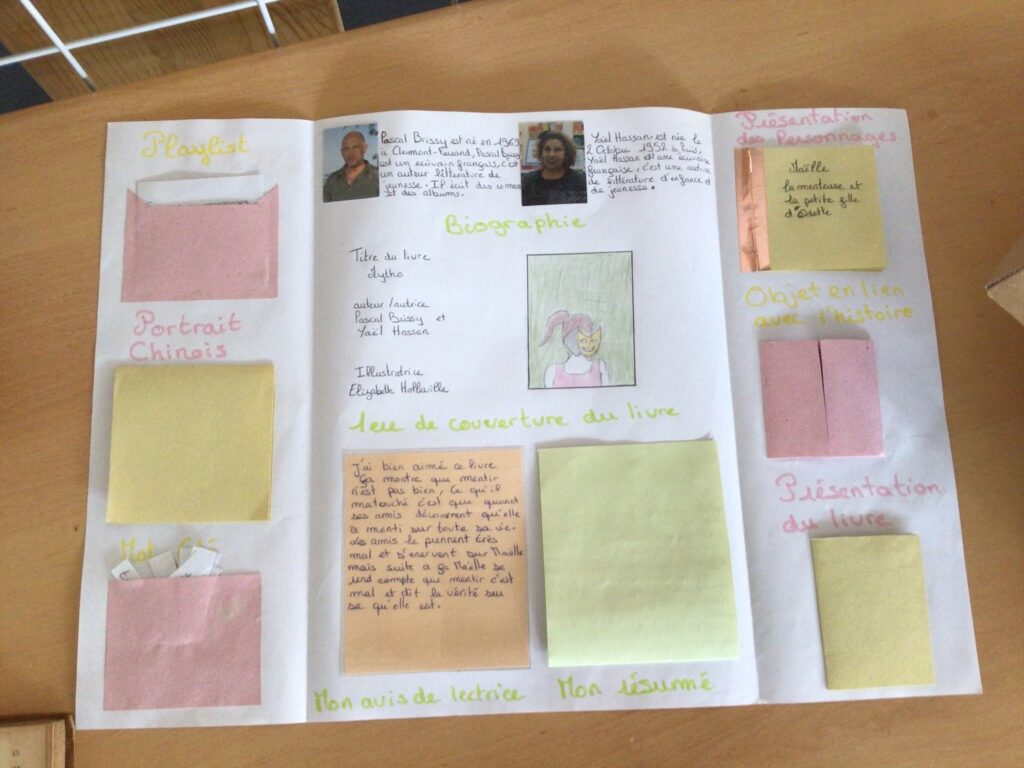 Playlist
Portrait
Chinois
Mot clé
Pascal Brissy est né en 1969
à Clermont-Ferrand, Pascal Brissy
est un écrivain français, c'est
un auteur littérature de
jeunesse. Il écrit des
et des albums.
Yaël Hassan est née le
2 Octobre 1952 à Paris,
Yaël Hassan est une écrivaine
française, c'est une autrice
de littérature d'enfance et
de jeunesse.
Biographie
Titre du livre
Mytho
auteur/autrice
Pascal Brissy et
Yaël Hassan
Illustratrice
Elizabeth Holleville
1ere de couverture du livre
j'ai bien aimé ce livre
Ça montre que mentir
n'est pas bien, Ce qu'il
m'a touché c'est que quand
ses amis découvrent qu'elle
a menti sur toute sa vie.
Les amis le prennent très
mal et s'énervent sur Maëlle
mais suite a ça Maëlle se
rend compte que mentir c'est
mal et dit la vérité sur
se qu'elle est.
Mon avis de lectrice
Mon résumé
Présentation
des Personnages
Maëlle
la menteuse et
la petite fille
d'Odette
Objet en lien
avec l'histoire
Présentation
du livre